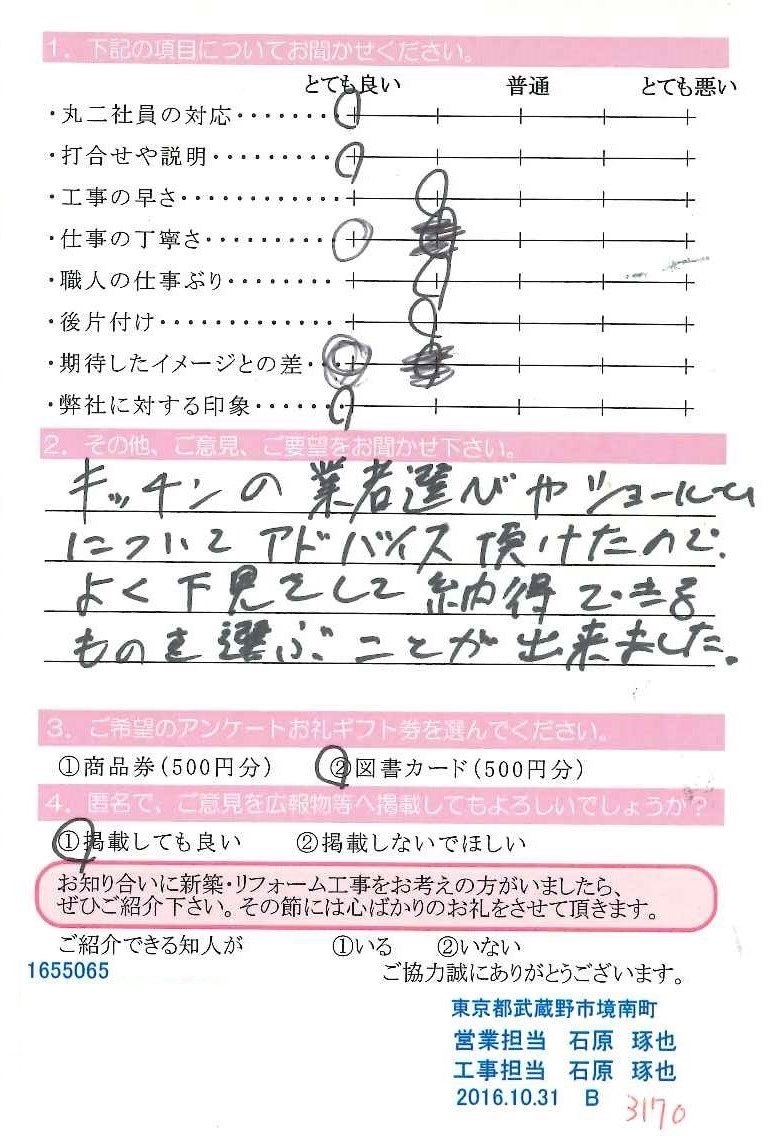 1. 下記の項目についてお聞かせください。
とても良い 普通 とても悪い
・丸二社員の対応・・・・・・・
・打合せや説明・・・・・・・・・
・工事の早さ・・・・・・・・・・・・
・仕事の丁寧さ・・・・・・・・・
・職人の仕事ぶり・・・・・・・・
・後片付け・・・・・・・・・・・・・
・期待したイメージとの差・
・弊社に対する印象・・・・・・
2. その他、ご意見、ご要望をお聞かせ下さい。
キッチンの業者選びやショールーム
についてアドバイス頂けたので、
よく下見をして納得できる
ものを選ぶことが出来ました。
3. ご希望のアンケートお礼ギフト券を選んでください。
①商品券(500円分) ②図書カード(500円分)
4. 匿名で、ご意見を広報物等へ掲載してもよろしいでしょうか?
①掲載しても良い ②掲載しないでほしい
お知り合いに新築・リフォーム工事をお考えの方がいましたら、
ぜひご紹介下さい。その節には心ばかりのお礼をさせて頂きます。
ご紹介できる知人が ①いる ②いない
1655065 ご協力誠にありがとうございます。
東京都武蔵野市境南町
営業担当 石原 琢也
工事担当 石原 琢也
2016.10.31 B 3170